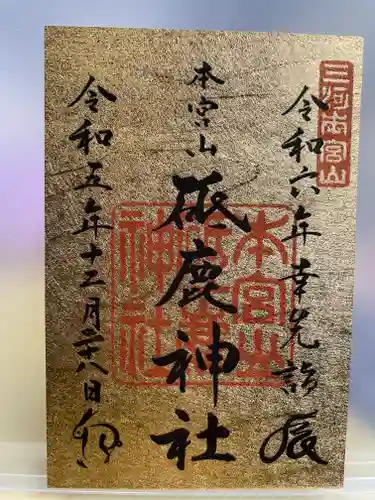 三河本宮山
令和六年幸先詣 辰
本宮山
砥鹿神社
本宮山
砥鹿
神社
令和五年十二月二十八日